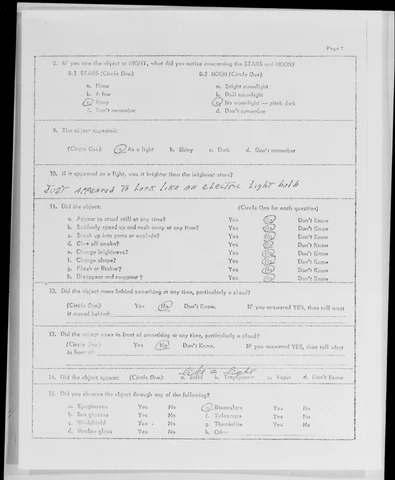 Page 2
8. If you saw the object at NIGHT, what did you notice concerning the STARS and MOON?
8.1 STARS (Circle One): 8.2 MOON (Circle One):
a. None a. Bright moonlight
b. A few b. Dull moonlight
c. Many c. No moonlight — pitch dark
d. Don't remember d. Don't remember
9. The object appeared:
(Circle One): a. As a light b. Shiny c. Dark d. Don't remember
10. If it appeared as a light, was it brighter than the brightest stars?
JUST APPEARED TO LOOK LIKE AN ELECTRIC LIGHT bulb
11. Did the object: (Circle One for each question)
a. Appear to stand still at any time? Yes No Don't Know
b. Suddenly speed up and rush away at any time? Yes No Don't Know
c. Break up into parts or explode? Yes No Don't Know
d. Give off smoke? Yes No Don't Know
e. Change brightness? Yes No Don't Know
f. Change shape? Yes No Don't Know
g. Flash or flicker? Yes No Don't Know
h. Disappear and reappear? Yes No Don't Know
12. Did the object move behind something at any time, particularly a cloud?
(Circle One): Yes No Don't Know. If you answered YES, then tell what
it moved behind:
13. Did the object move in front of something at any time, particularly a cloud?
(Circle One): Yes No Don't Know. If you answered YES, then tell what
in front of:
like a light
14. Did the object appear: (Circle One): a. Solid b. Transparent c. Vapor d. Don't Know
15. Did you observe the object through any of the following?
a. Eyeglasses Yes No e. Binoculars Yes No
b. Sun glasses Yes No f. Telescope Yes No
c. Windshield Yes No g. Theodolite Yes No
d. Window glass Yes No h. Other